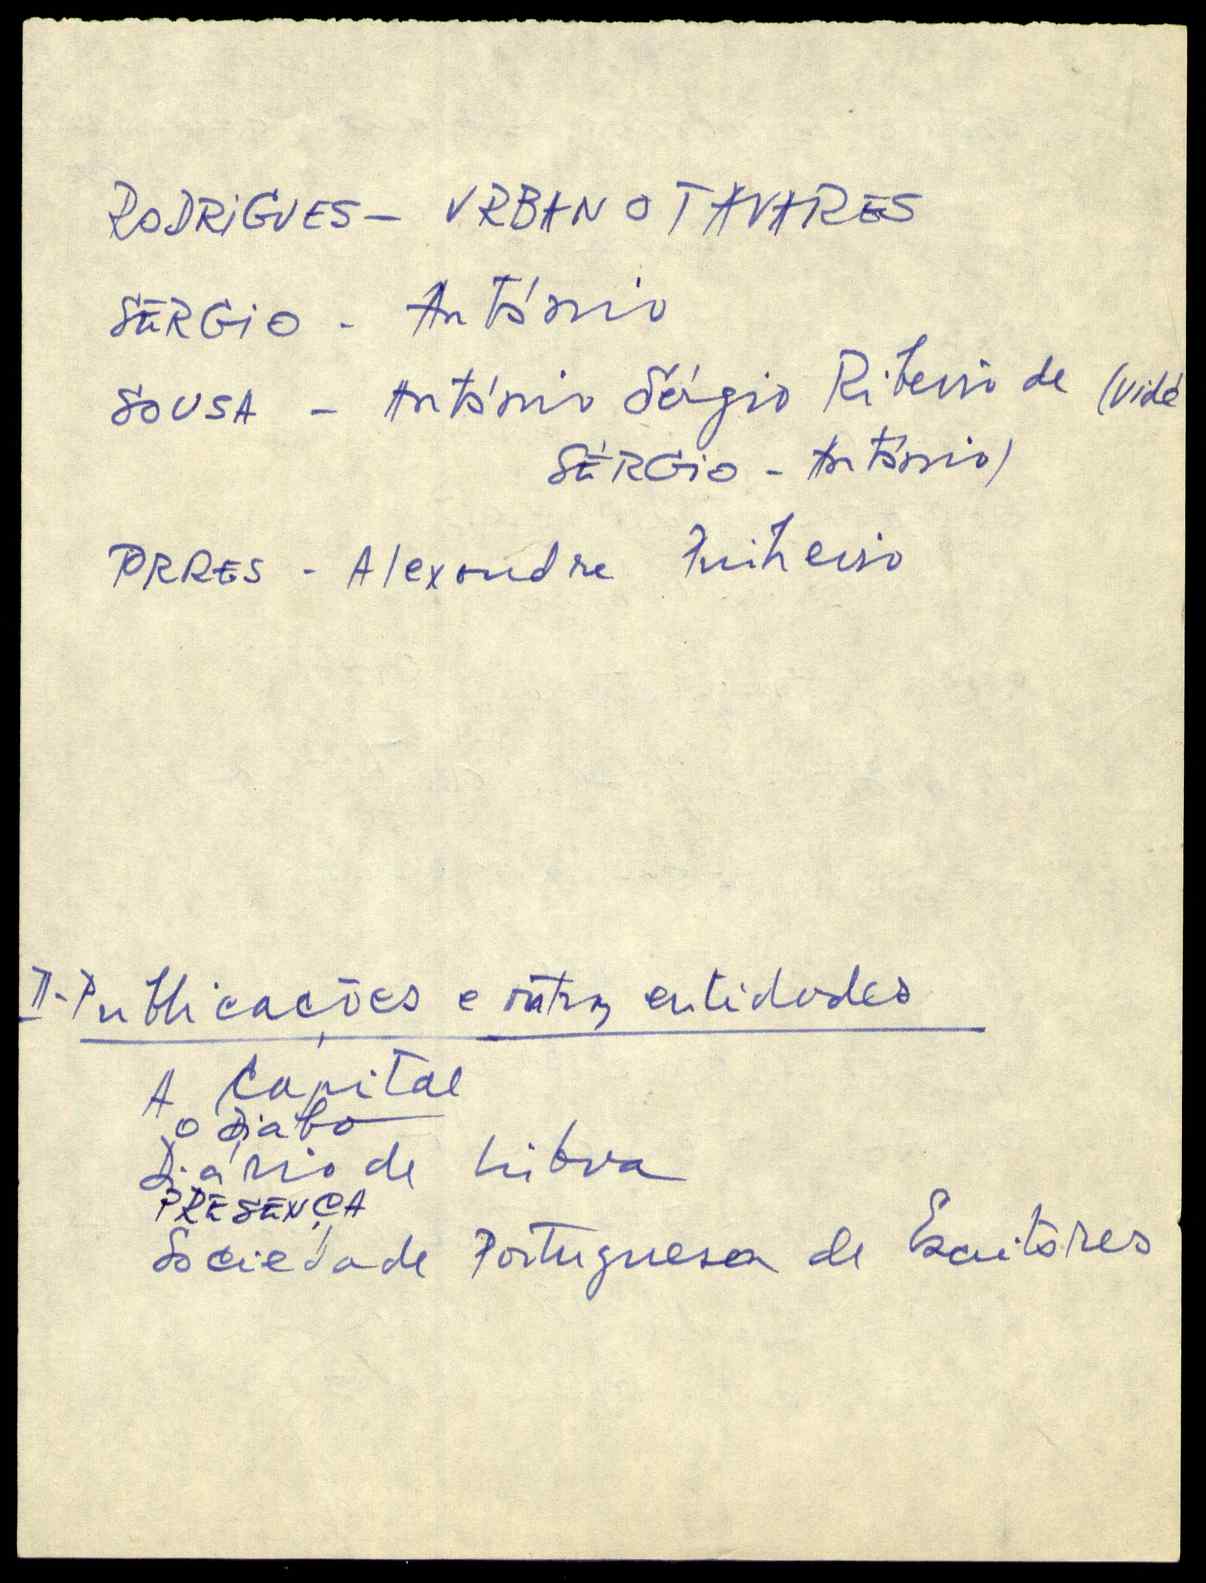 RODRIGUES - URBANO TAVARES
SÉRGIO - António
SOUSA - António Sérgio Ribeiro de (vidé
SÉRGIO - António)
TORRES - Alexandre Pinheiro
II - Publicações e outras entidades
A Capital
O Diabo
Diário de Lisboa
PRESENÇA
Sociedade Portuguesa de Escritores